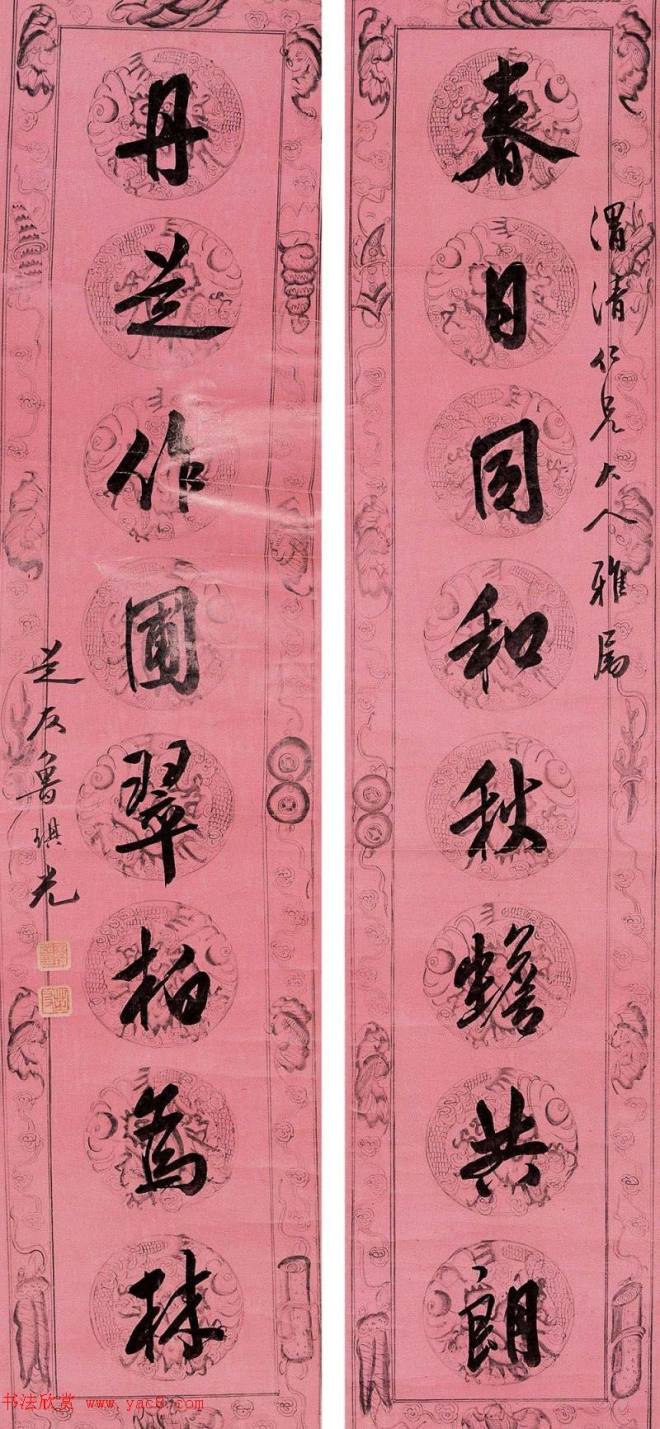 渭清仁兄大人雅属
春日同和秋蟾共朗
丹芝作圃翠柏为林
芝友鲁琪光
书法欣赏 www.yac8.com